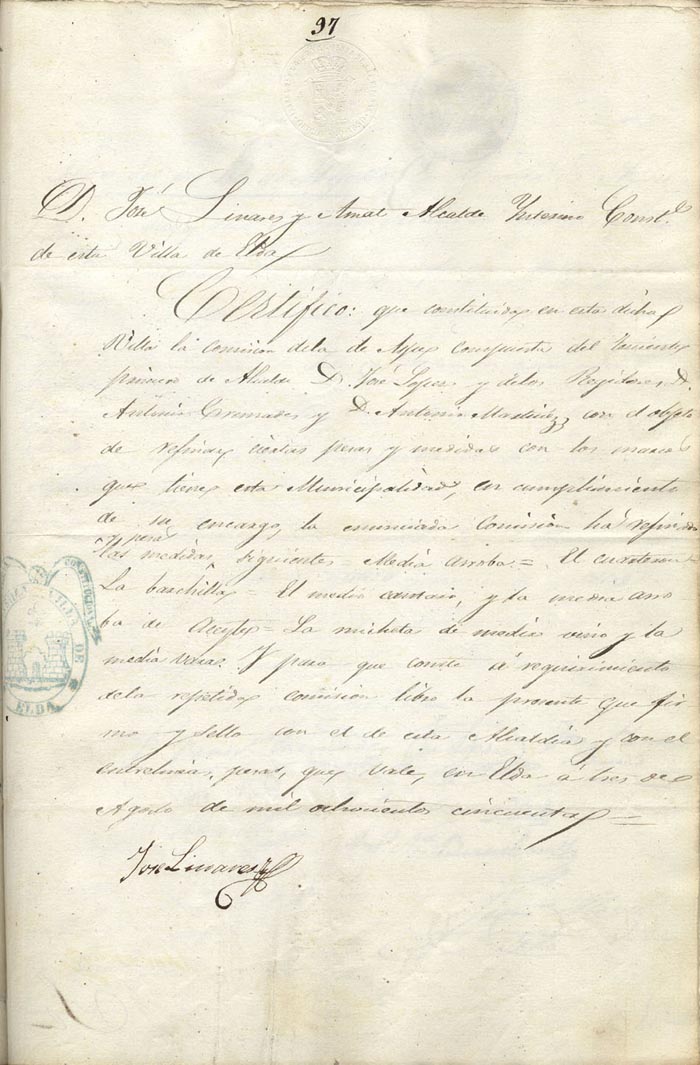 97
D. José Linares y Amat Alcalde Ynterino Const.l
de esta Villa de Elda
Certifico: que constituida en esta dicha
Villa la comision dela de Aspe compuesta del Teniente
primero de Alcalde D. José Lopez y delos Regidores D.
Antonio Cremades y D. Antonio Martinez con el objeto
de refinar ciertas pesas y medidas con los marcos
que tiene esta Municipalidad, en cumplimiento
de su encargo, la enunciada Comision há refinado
y pesas
las medidas siguientes = Media arroba = El cuarteron
La barchilla = El medio cantaro, y la media arro
ba de Aceyte = La micheta de medir vino y la
media vara. Y para que conste á requirimiento
dela repetida comision libro la presente que fir
mo y sello con el de esta Alcaldia y con el
entrelinias, pesas, que vale, en Elda á tres de
Agosto de mil ochocientos cincuenta =
Jose Linares
CONSTITUCIONAL
VILLA DE
ELDA